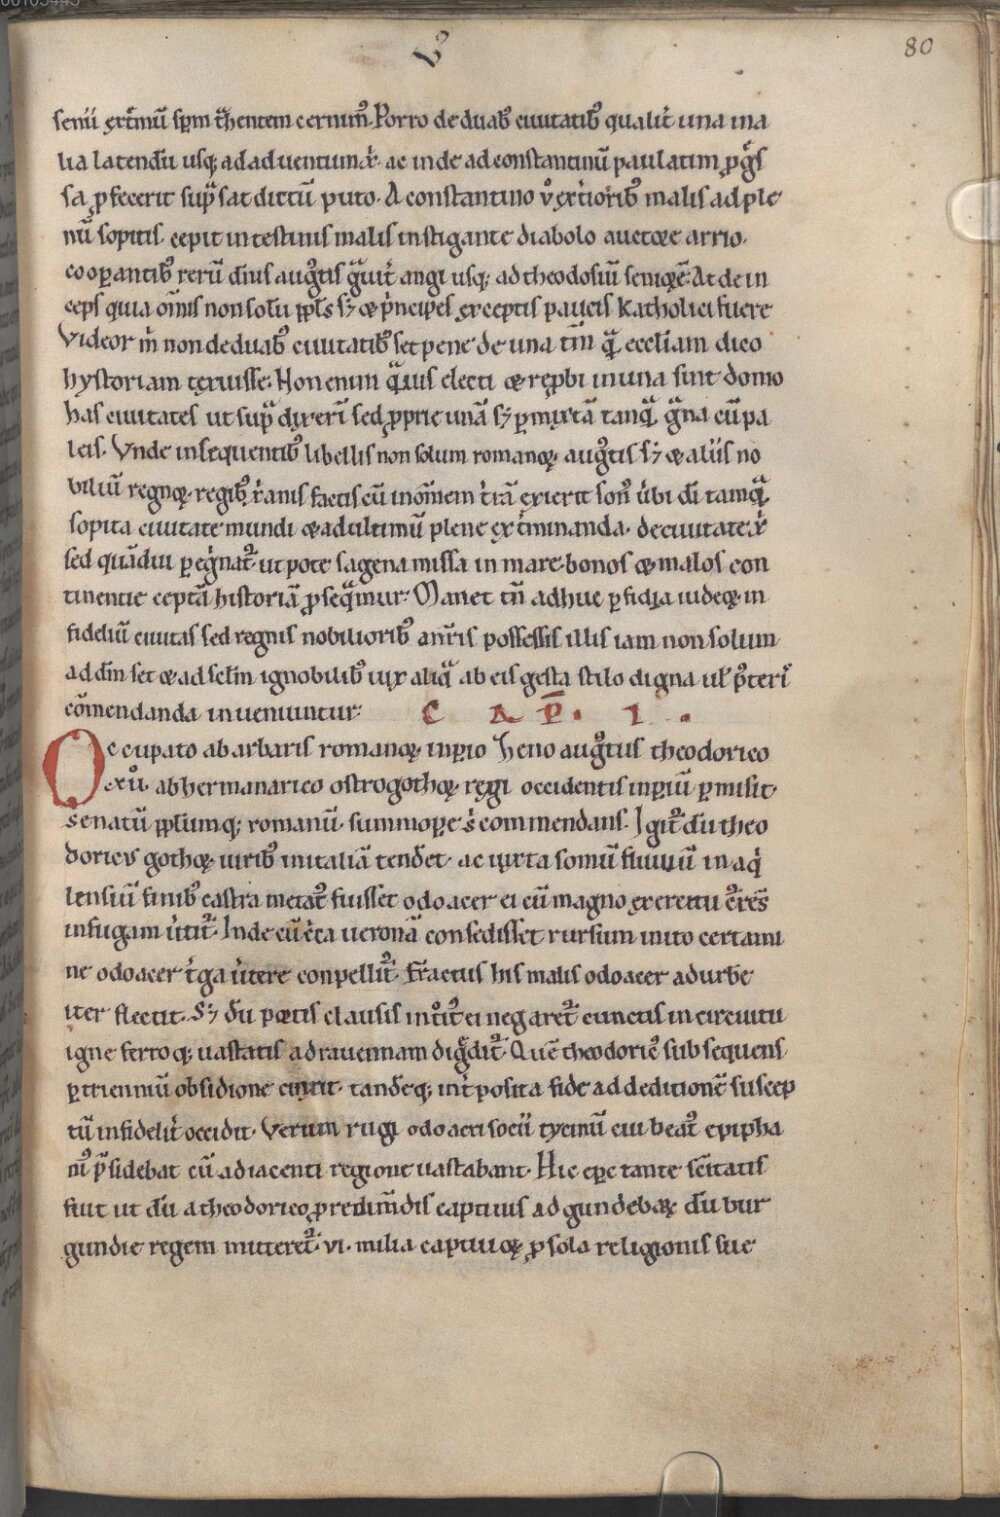 80
senii ext̄mū sp̄m t̄hentem cernim᷒. Porro de duab᷒ ciuitatib᷒ qualit̄ una in a
lia latendū usq; ad aduentum xp̄i. ac inde ad constantinū paulatim ꝓgͥs
sa ꝓfecerit sup̄ sat dictū puto. A constantino v̊ ext̄iorib᷒ malis ad ple
nū sopitis. cepit intestinis malis instigante diabolo auctore arrio.
cooꝑantib᷒ rerū dīus aug᷒tis gͣuit̄ angi usq; ad theodosiū seniorē. At dein
ceps quia om̄is non solū ppl̄s sꝫ & pͥncipes exceptis paucis katholici fuere
Videor m̄ non de duab᷒ ciuitatib᷒ set pene de una tm̄ qͣ eccliam dico
hystoriam texuisse. Non enim qͣuis electi & rep̄bi in una sint domo
has ciuitates ut sup̄ dixerī sed ꝓprie unā sꝫ ꝑmixtā tanqͣ gͣna cū pa
leis. Vnde insequentib᷒ libellis non solum romanoꝝ. aug᷒tis sꝫ & aliis no
biliū regnoꝝ. regib᷒ x̄anis factis cū in om̄em t̄rā exierit son᷒ v̄bi dī tamqͣ
sopita ciuitate mundi & ad ultimū plene ext̄minanda. de ciuitate xp̄i
sed quādiu ꝑegͥnat᷑. ut pote sagena missa in mare. bonos & malos con
tinentie ceptā historiā ꝓseqͣmur. Manet tn̄ adhuc ꝑfidia iudeoꝝ in
fideliū ciuitas sed regnis nobiliorib᷒ a nr̄is possessis illis iam non solum
ad dm̄ set & ad sclm̄ ignobilib᷒ uix aliqͣ ab eis gesta stilo digna ul̄ p̄teri
cōmendanda inueniuntur. C A P̄. I.
Occupato a barbaris romanoꝝ. inꝑio Zeno aug᷒tus theodorico
exu᷒. ab hermanarico ostrogothoꝝ. regi occidentis inꝑiū ꝑmisit.
senatū pp̄lumq; romanū. summoꝑe s̄ commendans. Igit᷑ dū theo
doricus gothoꝝ. uirib᷒ in italiā tendet̄. ac iuxta somū fluuiū in aqͥ
lensiū finib᷒ castra metat᷒ fuisset odoacer ei cū magno exercitu
in fugam v̄tit᷑. Inde cū c̄ca ueronā consedisset rursum inito certami
ne odoacer t̄ga v̄tere conpellit᷑. Fractus his malis odoacer ad urbē
iter flectit. Sꝫ dū portis clausis intͦit᷒ ei negaret᷑ cunctis in circuitu
igne ferroq; uastatis ad rauennam digͣdit᷑. Quē theodoric᷒ subsequens
ꝑ trienniū obsidione cinxit. tandēq; int̄posita fide ad deditionē suscep
tū infidelit̄ occidit. Verum rugi odoacri socii tycinū cui beat᷒ epipha
ni᷒ p̄sidebat cū adiacenti regione uastabant. Hic epc̄ tante scītatis
fuit ut dū a theodorico ꝓ redimēdis captiuis ad gundebarꝝ dū bur
gundie regem mitteret᷑. vi. milia captiuoꝝ ꝓ sola religionis sue